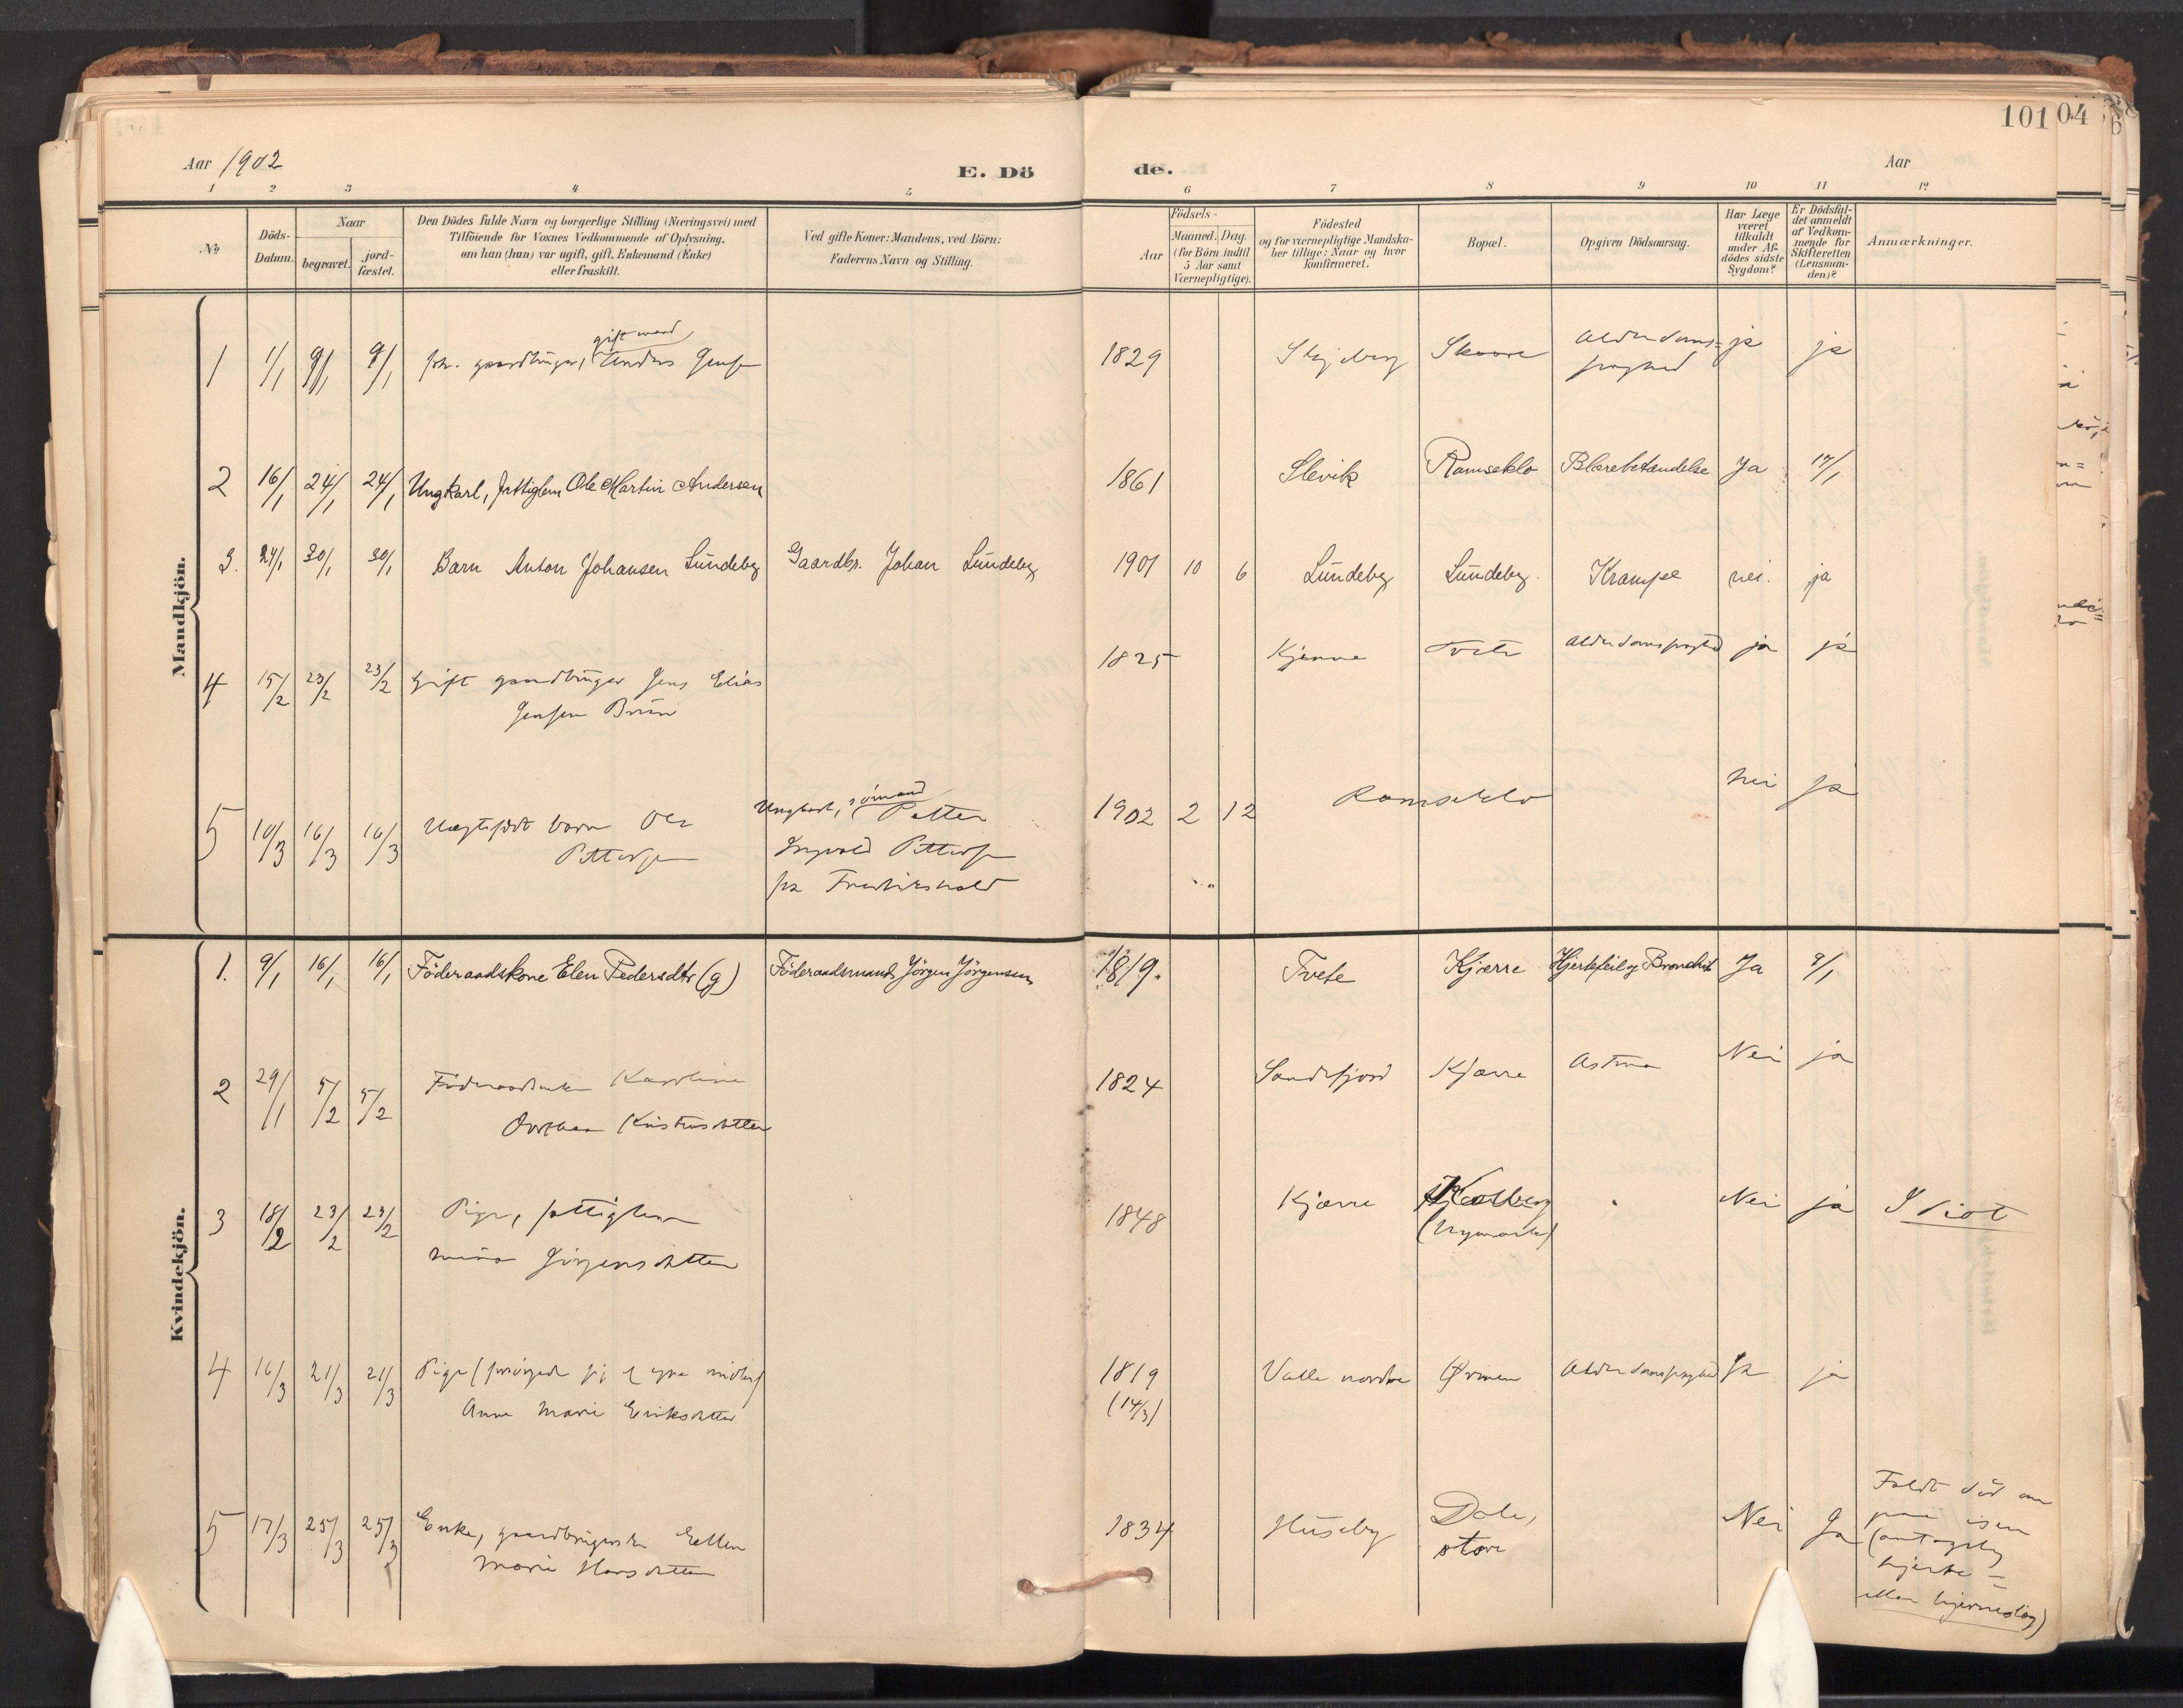 101 04
Aar 1902
E. Dö
de.
Aar
1 2 3 4 5 6 7 8 9 10 11 12
No
Döds-
Datum.
Naar
begravet.
jord-
fæstet.
Den Dödes fulde Navn og borgerlige Stilling (Næringsvei) med
Tilföiende for Voxnes Vedkommende af Oplysning.
om han (hun) var ugift, gift, Enkemand (Enke)
eller fraskilt.
Ved gifte Koner: Mandens, ved Börn:
Faderens Navn og Stilling.
Aar
Födsels-
Maaned. Dag
(for Börn indtil
5 Aar samt
Værnepligtige).
Födested
og for værnepligtige Mandska-
ber tillige: Naar og hvor
konfirmeret.
Bopæl.
Opgiven Dödsaarsag.
Har Læge
været
tilkaldt
under Af-
dödes sidste
Sygdom?
Er Dödsfal-
det anmeldt
af Vedkom-
mende for
Skifteretten
(Lensman-
den)?
Anmærkninger.
Mandkjön.
gift mand
1 1/1 9/1 9/1 gaardbruger, Anders 1829 Skaare Alderdoms= ja ja
2 16/1 24/1 24/1 Ungkarl, fattiglem Ole Martin Andersen 1861 Slevik Ramseklo Blærebetændelse Ja 17/1
3. 24/1 30/1 30/1 Barn Anton Johansen Lundeby Gaardbr. Johan Lundeby 1901 10 6 Lundeby Lundeby. Krampe nei. ja
4 15/2 23/2 23/2 Gift gaardbruger Jens Elias 1825 Kjærre Tvete ja ja
Jensen
5 10/3 16/3 16/3 Uægtefødt barn Ole Ungkarl, sömand Petter 1902 2 12 Ramseklo Nei ja
Pettersen Ingvald Pettersen
fra Fredrikshald
Kvindekjön.
1. 9/1 16/1 16/1 Föderaadskone Elen Pedersdtr (g) Föderaadsmand Jörgen Jörgensen 1819. Tvete Kjærre Hjertefeil og Bronchit Ja 9/1
2 29/1 5/2 5/2 Karoline 1824 Sandefjord Kjærre Astma Nei ja
3 18/2 23/2 23/2 Pige, fattiglem 1848 Kjærre Nei ja Idiot
Mina Jörgensdatter (Nymark)
4 16/3 21/3 21/3 Pige (forsörgede sig af egne midler) 1819 Valle nordre ja ja
Anne Marie Eriksdatter (14/3)
5 17/3 25/3 25/3 Enke, gaardbrugerske Ellen 1834 Huseby Dale, Nei Ja Faldt död om
Marie Hansdatter store paa isen
(antagelig
hjerte=
eller hjerneslag)